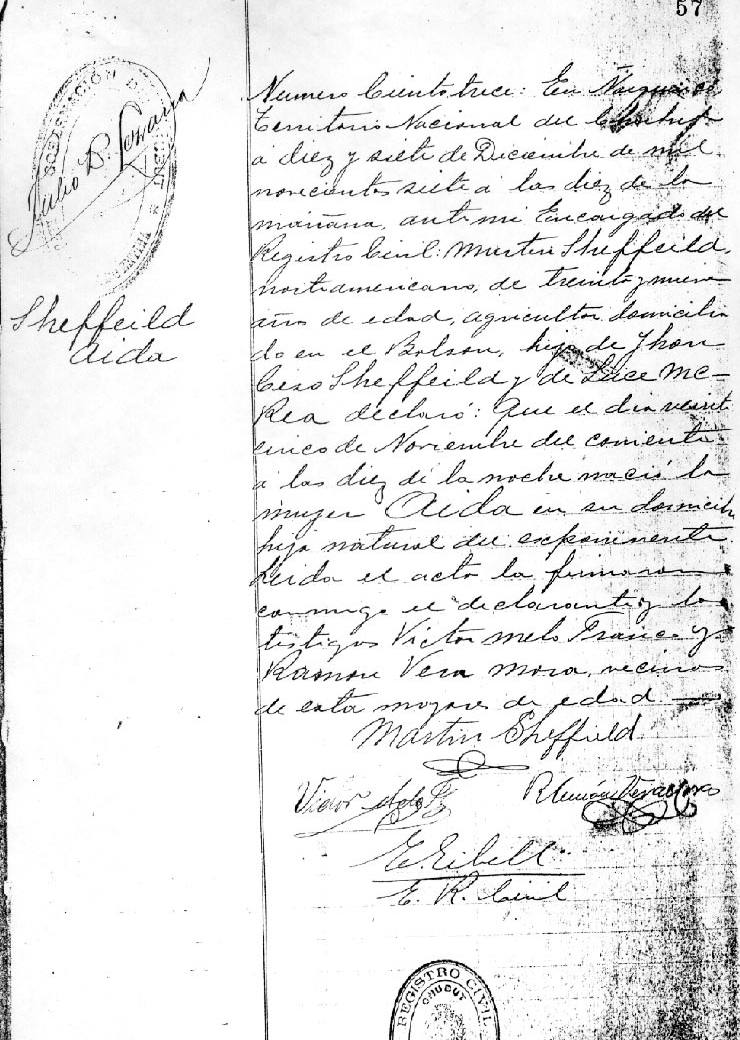 57
GOBERNACIÓN D
Julio B. Lezana
Sheffeild
Aida
Numero Ciento trece: En
Territorio Nacional del Chubut
á diez y siete de Diciembre de mil
novecientos siete á las diez de la
mañana, ante mi Encargado del
Registro Civil: Martin Sheffeild,
norteamericano, de treinta y nueve
años de edad, agricultor domicilia
do en el Bolson, hijo de Jhon
Ceso Sheffeild y de Luce Mc-
Rea declaró: Que el dia veinti
cinco de Noviembre del corriente
á las diez de la noche nació la
mujer Aida en su domicilio
hija natural del exponente.
Leida el acta la firmaron
conmigo el declarante y los
testigos Victor Melo Franco y
Ramon Vera Mora, vecinos
de esta mayores de edad —
Martin Sheffield
Victor Melo F.
Ramón Vera Mora
E. R. Civil
REGISTRO CIVIL
CHUBUT